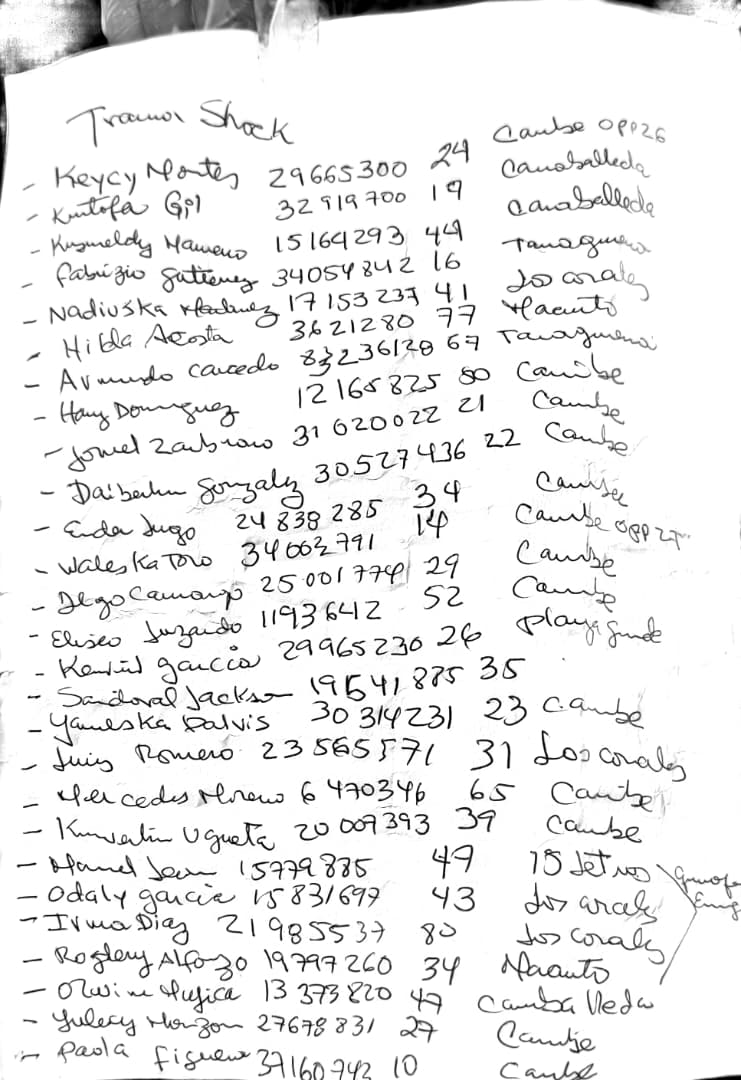 Trauma Shock
- Keycy Montes 29665300 24 Caribe OPP26
- Gil 32919700 19 Caraballeda
- 15164293 44 Caraballeda
- Fabrizio Gutierrez 34054842 16 Tanaguarena
- Nadiuska Martinez 17153237 41 Los corales
- Hilda Acosta 3621280 77 Macuto
- Armando Caicedo 83236128 67 Tanaguarena
- Hany Dominguez 12165825 50 Caribe
- 31620022 21 Caribe
- Gonzalez 30527436 22 Caribe
- Lugo 24838285 34 Caribe
- Waleska Toro 34662791 14 Caribe OPP27
- Diego Camargo 25001774 29 Caribe
- Eliseo 1193642 52 Caribe
- garcia 29965230 26 playa grande
- Sandoval Jackson 19541885 35
- Yaneska Dalvis 30314231 23 Caribe
- Luis Romero 23565571 31 Los corales
- Mercedes Moreno 6470346 65 Caribe
- Ugueta 20009393 39 Caribe
- 15779885 49
- Odaly garcia 15831697 43 Los corales
- Irma Diaz 21985537 80 Los Corales
- Alfonzo 19797260 34 Macuto
- Mujica 13373820 47
- Yulecy Monzon 27678831 27 Caribe
- Paola Figuera 37160742 10 Caribe